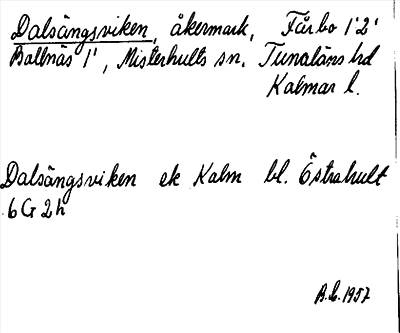 Dalsängsviken, åkermark, Fårbo 1'2'
Ballnäs 1', Misterhults sn. Tunaläns hd
Kalmar l.
Dalsängsviken ek Kalm bl. Östrahult
6G2h
A.C. 1957